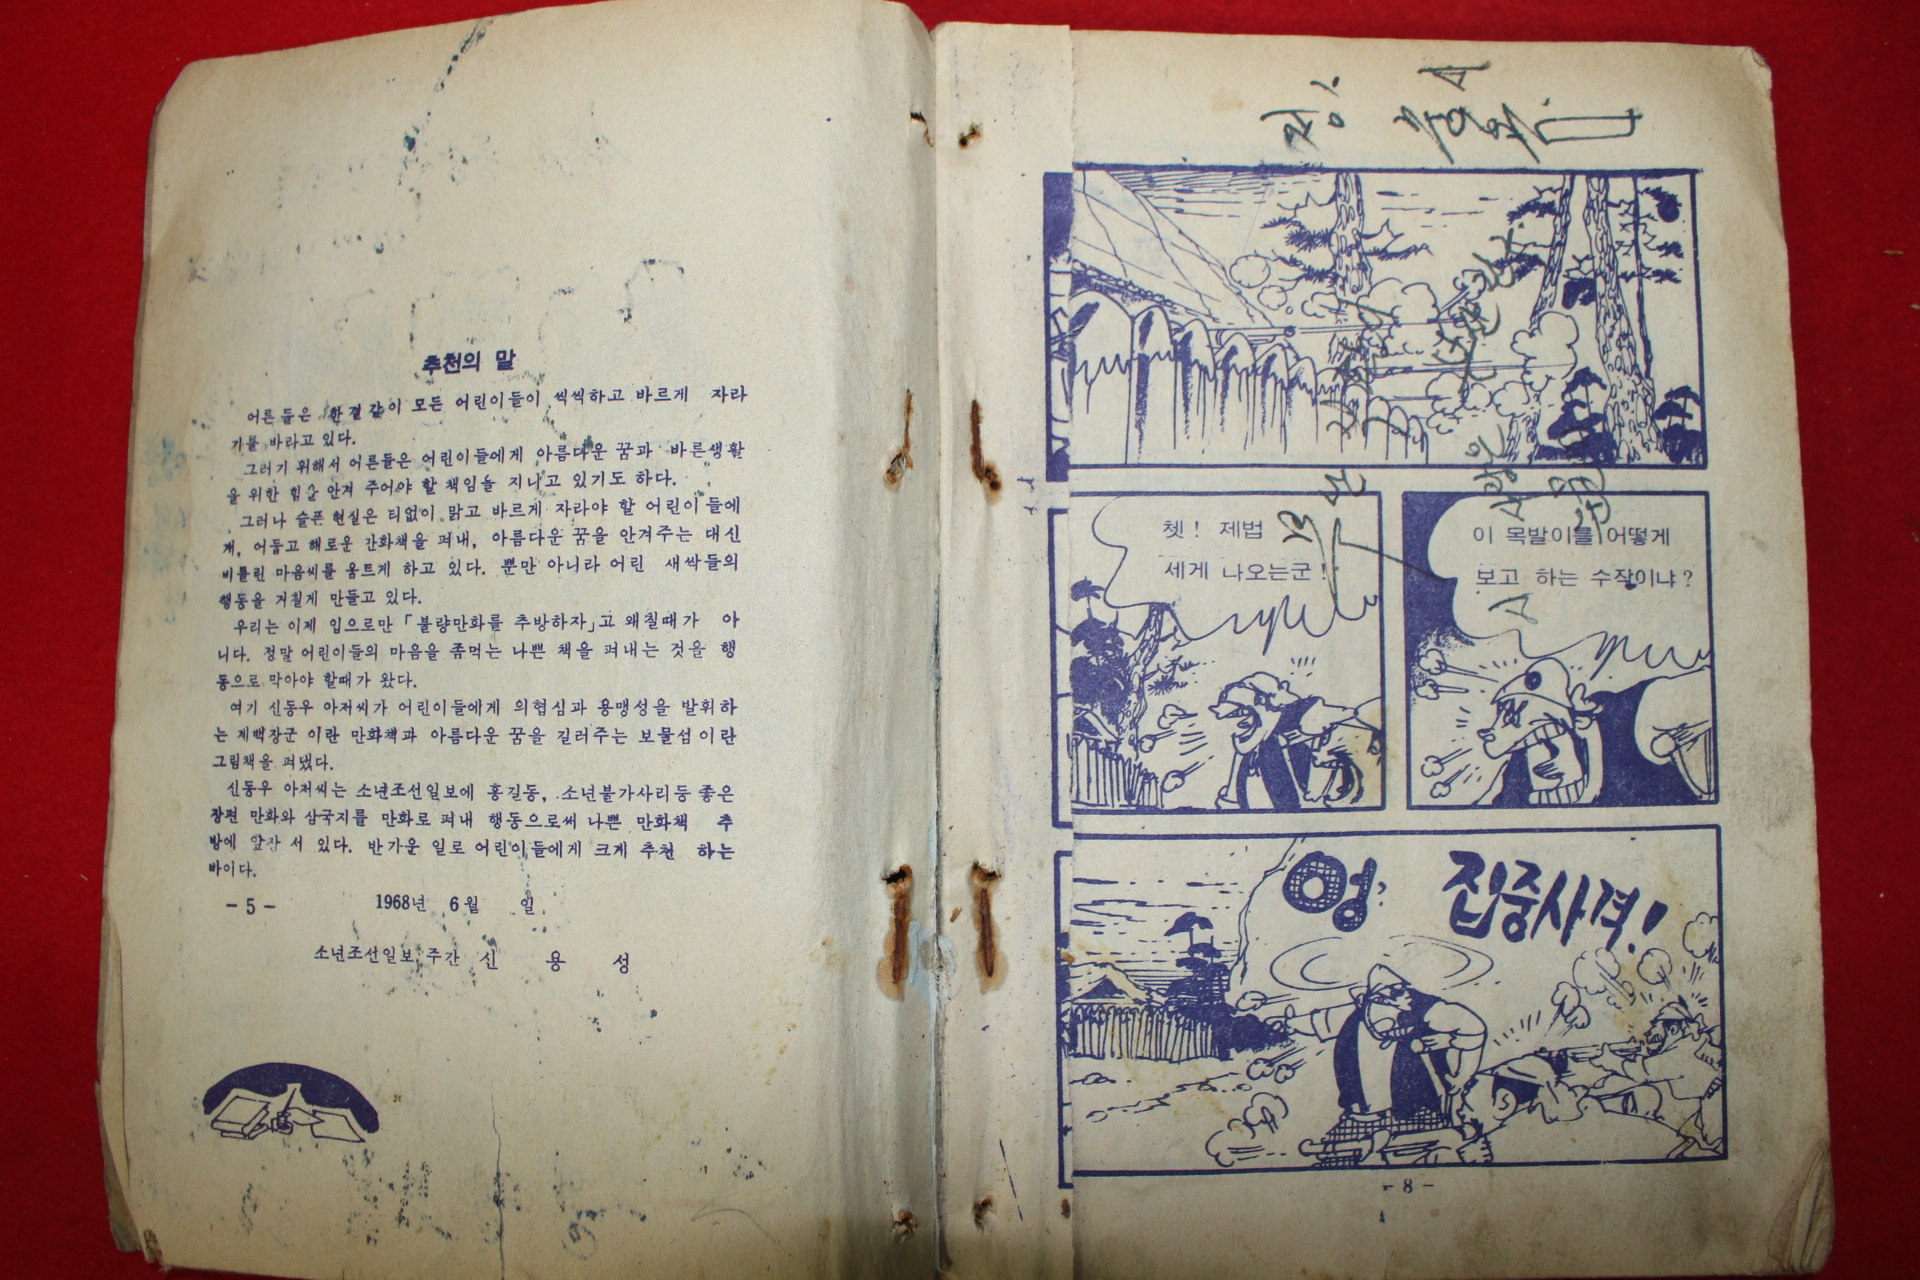 추천의 말
어른들은 한결같이 모든 어린이들이 씩씩하고 바르게 자라
기를 바라고 있다.
그러기 위해서 어른들은 어린이들에게 아름다운 꿈과 바른생활
을 위한 힘을 안겨 주어야 할 책임을 지니고 있기도 하다.
그러나 슬픈 현실은 티없이 맑고 바르게 자라야 할 어린이들에
게, 어둡고 해로운 만화책을 펴내, 아름다운 꿈을 안겨주는 대신
비틀린 마음씨를 움트게 하고 있다. 뿐만 아니라 어린 새싹들의
행동을 거칠게 만들고 있다.
우리는 이제 입으로만 「불량만화를 추방하자」고 왜칠때가 아
니다. 정말 어린이들의 마음을 좀먹는 나쁜 책을 펴내는 것을 행
동으로 막아야 할때가 왔다.
여기 신동우 아저씨가 어린이들에게 의협심과 용맹성을 발휘하
는 계백장군 이란 만화책과 아름다운 꿈을 길러주는 보물섬이란
그림책을 펴냈다.
신동우 아저씨는 소년조선일보에 홍길동, 소년불가사리등 좋은
장편 만화와 삼국지를 만화로 펴내 행동으로써 나쁜 만화책 추
방에 앞장 서 있다. 반가운 일로 어린이들에게 크게 추천 하는
바이다.
- 5 -
1968년 6월 일
소년조선일보 주간 신 용 성
쳇! 제법
세게 나오는군!
이 목발이를 어떻게
보고 하는 수작이냐?
엉?
집중사격!
- 8 -